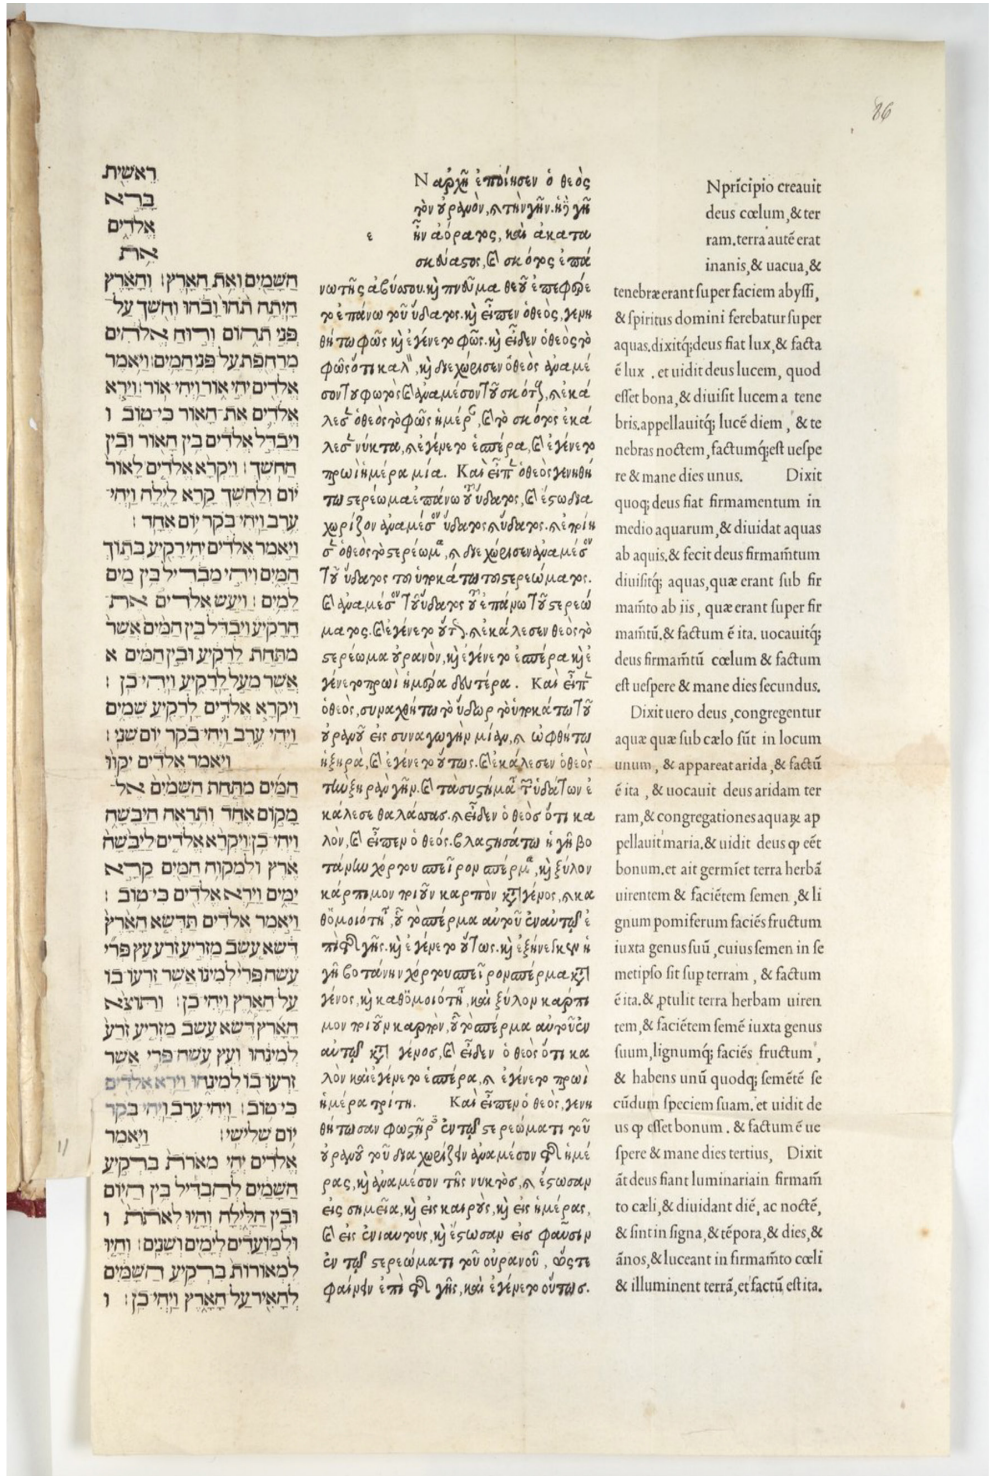 ראשית
ברא
אלדים
את
השמים ואת הארץ׃ והארץ
היתה תהו ובהו וחשך על
פני תהום ורוח אלהים
מרחפת על פני המים׃ ויאמר
אלדים יהי אור ויהי אור׃ וירא
אלדים את האור כי טוב ו
ויבדל אלדים בין האור ובין
החשך׃ ויקרא אלדים לאור
יום ולחשך קרא לילה ויהי
ערב ויהי בקר יום אחד׃
ויאמר אלדים יהי רקיע בתוך
המים ויהי מבדיל בין מים
למים׃ ויעש אלדים את
הרקיע ויבדל בין המים אשר
מתחת לרקיע ובין המים א
אשר מעל לרקיע ויהי כן׃
ויקרא אלדים לרקיע שמים
ויהי ערב ויהי בקר יום שני׃
ויאמר אלדים יקוו
המים מתחת השמים אל
מקום אחד ותראה היבשה
ויהי כן׃ ויקרא אלדים ליבשה
ארץ ולמקוה המים קרא
ימים וירא אלדים כי טוב׃
ויאמר אלדים תדשא הארץ
דשא עשב מזריע זרע עץ פרי
עשה פרי למינו אשר זרעו בו
על הארץ ויהי כן׃ ותוצא
הארץ דשא עשב מזריע זרע
למינהו ועץ עשה פרי אשר
זרעו בו למינהו וירא אלדים
כי טוב׃ ויהי ערב ויהי בקר
יום שלישי׃ ויאמר
אלדים יהי מארת ברקיע
השמים להבדיל בין היום
ובין הלילה והיו לאתת ו
ולמועדים לימים ושנים׃ והיו
למאורות ברקיע השמים
להאיר על הארץ ויהי כן׃ ו
Ν αρχῇ ἐποίησεν ὁ θεὸς
τὸν οὐρανὸν, καὶ τὴν γῆν. ἡ δὲ γῆ
ε ἦν ἀόρατος, καὶ ἀκατα
σκεύαστος, καὶ σκότος ἐπά
νω τῆς ἀβύσσου. καὶ πνεῦμα θεοῦ ἐπεφέρε
το ἐπάνω τοῦ ὕδατος. καὶ εἶπεν ὁ θεὸς, γενη
θήτω φῶς καὶ ἐγένετο φῶς. καὶ εἶδεν ὁ θεὸς τὸ
φῶς ὅτι καλὸν, καὶ διεχώρισεν ὁ θεὸς ἀναμέ
σον τοῦ φωτὸς καὶ ἀναμέσον τοῦ σκότους, καὶ ἐκά
λεσεν ὁ θεὸς τὸ φῶς ἡμέραν, καὶ τὸ σκότος ἐκά
λεσε νύκτα, καὶ ἐγένετο ἑσπέρα, καὶ ἐγένετο
πρωὶ ἡμέρα μία. Καὶ εἶπεν ὁ θεὸς γενηθή
τω στερέωμα ἐπάνω τοῦ ὕδατος, καὶ ἔστω δια
χωρίζον ἀναμέσον ὕδατος καὶ ὕδατος. καὶ ἐποίη
σεν ὁ θεὸς τὸ στερέωμα, καὶ διεχώρισεν ἀναμέσον
τοῦ ὕδατος τοῦ ὑποκάτω τοῦ στερεώματος.
καὶ ἀναμέσον τοῦ ὕδατος τοῦ ἐπάνω τοῦ στερεώ
ματος. καὶ ἐγένετο οὕτως. καὶ ἐκάλεσεν θεὸς τὸ
στερέωμα οὐρανὸν, καὶ ἐγένετο ἑσπέρα καὶ ἐ
γένετο πρωὶ ἡμέρα δευτέρα. Καὶ εἶπεν
ὁ θεὸς, συναχθήτω τὸ ὕδωρ τὸ ὑποκάτω τοῦ
οὐρανοῦ εἰς συναγωγὴν μίαν, καὶ ὠφθήτω
ἡ ξηρὰ, καὶ ἐγένετο οὕτως. καὶ ἐκάλεσεν ὁ θεὸς
τὴν ξηρὰν γῆν. καὶ τὰ συστήματα τῶν ὑδάτων ἐ
κάλεσε θαλάσσας. καὶ εἶδεν ὁ θεὸς ὅτι κα
λὸν, καὶ εἶπεν ὁ θεός. βλαστησάτω ἡ γῆ βο
τάνην χόρτου σπεῖρον σπέρμα, καὶ ξύλον
κάρπιμον ποιοῦν καρπὸν κατὰ γένος, καὶ κα
θ᾽ ὁμοιότητα, οὗ τὸ σπέρμα αὐτοῦ ἐν αὐτῷ ἐ
πὶ τῆς γῆς. καὶ ἐγένετο οὕτως. καὶ ἐξήνεγκεν ἡ
γῆ βοτάνην χόρτου σπεῖρον σπέρμα κατὰ
γένος, καὶ καθ᾽ ὁμοιότητα, καὶ ξύλον κάρπι
μον ποιοῦν καρπὸν, οὗ τὸ σπέρμα αὐτοῦ ἐν
αὐτῷ κατὰ γένος, καὶ εἶδεν ὁ θεὸς ὅτι κα
λὸν καὶ ἐγένετο ἑσπέρα, καὶ ἐγένετο πρωὶ
ἡμέρα τρίτη. Καὶ εἶπεν ὁ θεὸς, γενη
θήτωσαν φωστῆρες ἐν τῷ στερεώματι τοῦ
οὐρανοῦ τοῦ διαχωρίζειν ἀναμέσον τῆς ἡμέ
ρας, καὶ ἀναμέσον τῆς νυκτὸς, καὶ ἔστωσαν
εἰς σημεῖα, καὶ εἰς καιροὺς, καὶ εἰς ἡμέρας,
καὶ εἰς ἐνιαυτοὺς, καὶ ἔστωσαν εἰς φαῦσιν
ἐν τῷ στερεώματι τοῦ οὐρανοῦ, ὥστε
φαίνειν ἐπὶ τῆς γῆς, καὶ ἐγένετο οὕτως.
N prīcipio creauit
deus cœlum, & ter
ram. terra autē erat
inanis, & uacua, &
tenebræ erant super faciem abyssi,
& spiritus domini ferebatur super
aquas. dixitq; deus fiat lux, & facta
ē lux. et uidit deus lucem, quod
esset bona, & diuisit lucem a tene
bris. appellauitq; lucē diem, & te
nebras noctem, factumq; est uespe
re & mane dies unus. Dixit
quoq; deus fiat firmamentum in
medio aquarum, & diuidat aquas
ab aquis. & fecit deus firmam̄tum
diuisitq; aquas, quæ erant sub fir
mam̄to ab iis, quæ erant super fir
mam̄tū. & factum ē ita. uocauitq;
deus firmam̄tū cœlum & factum
est uespere & mane dies secundus.
Dixit uero deus, congregentur
aquæ quæ sub cælo sūt in locum
unum, & appareat arida, & factū
ē ita, & uocauit deus aridam ter
ram, & congregationes aquaꝝ ap
pellauit maria. & uidit deus ꝙ eēt
bonum. et ait germiet terra herbā
uirentem & faciētem semen, & li
gnum pomiferum faciēs fructum
iuxta genus suū, cuius semen in se
metipso sit sup terram, & factum
ē ita. & ꝓtulit terra herbam uiren
tem, & faciētem semē iuxta genus
suum, lignumq; faciēs fructum,
& habens unū quodq; semētē se
cūdum speciem suam. et uidit de
us ꝙ esset bonum. & factum ē ue
spere & mane dies tertius, Dixit
āt deus fiant luminaria in firmam̄
to cæli, & diuidant diē, ac noctē,
& sint in signa, & tēpora, & dies, &
ānos, & luceant in firmam̄to cœli
& illuminent terrā, et factū est ita.